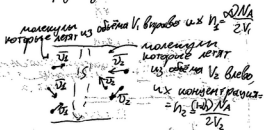 молекулы
которые летят из объёма V₁ вправо и их n₁ = NA / 2V₁
молекулы
которые летят
из объёма V₂ влево,
их концентрация =
= n₂ = NA / 2V₂
v̄₁
v̄₁
v̄₂
v̄₁
v̄₂